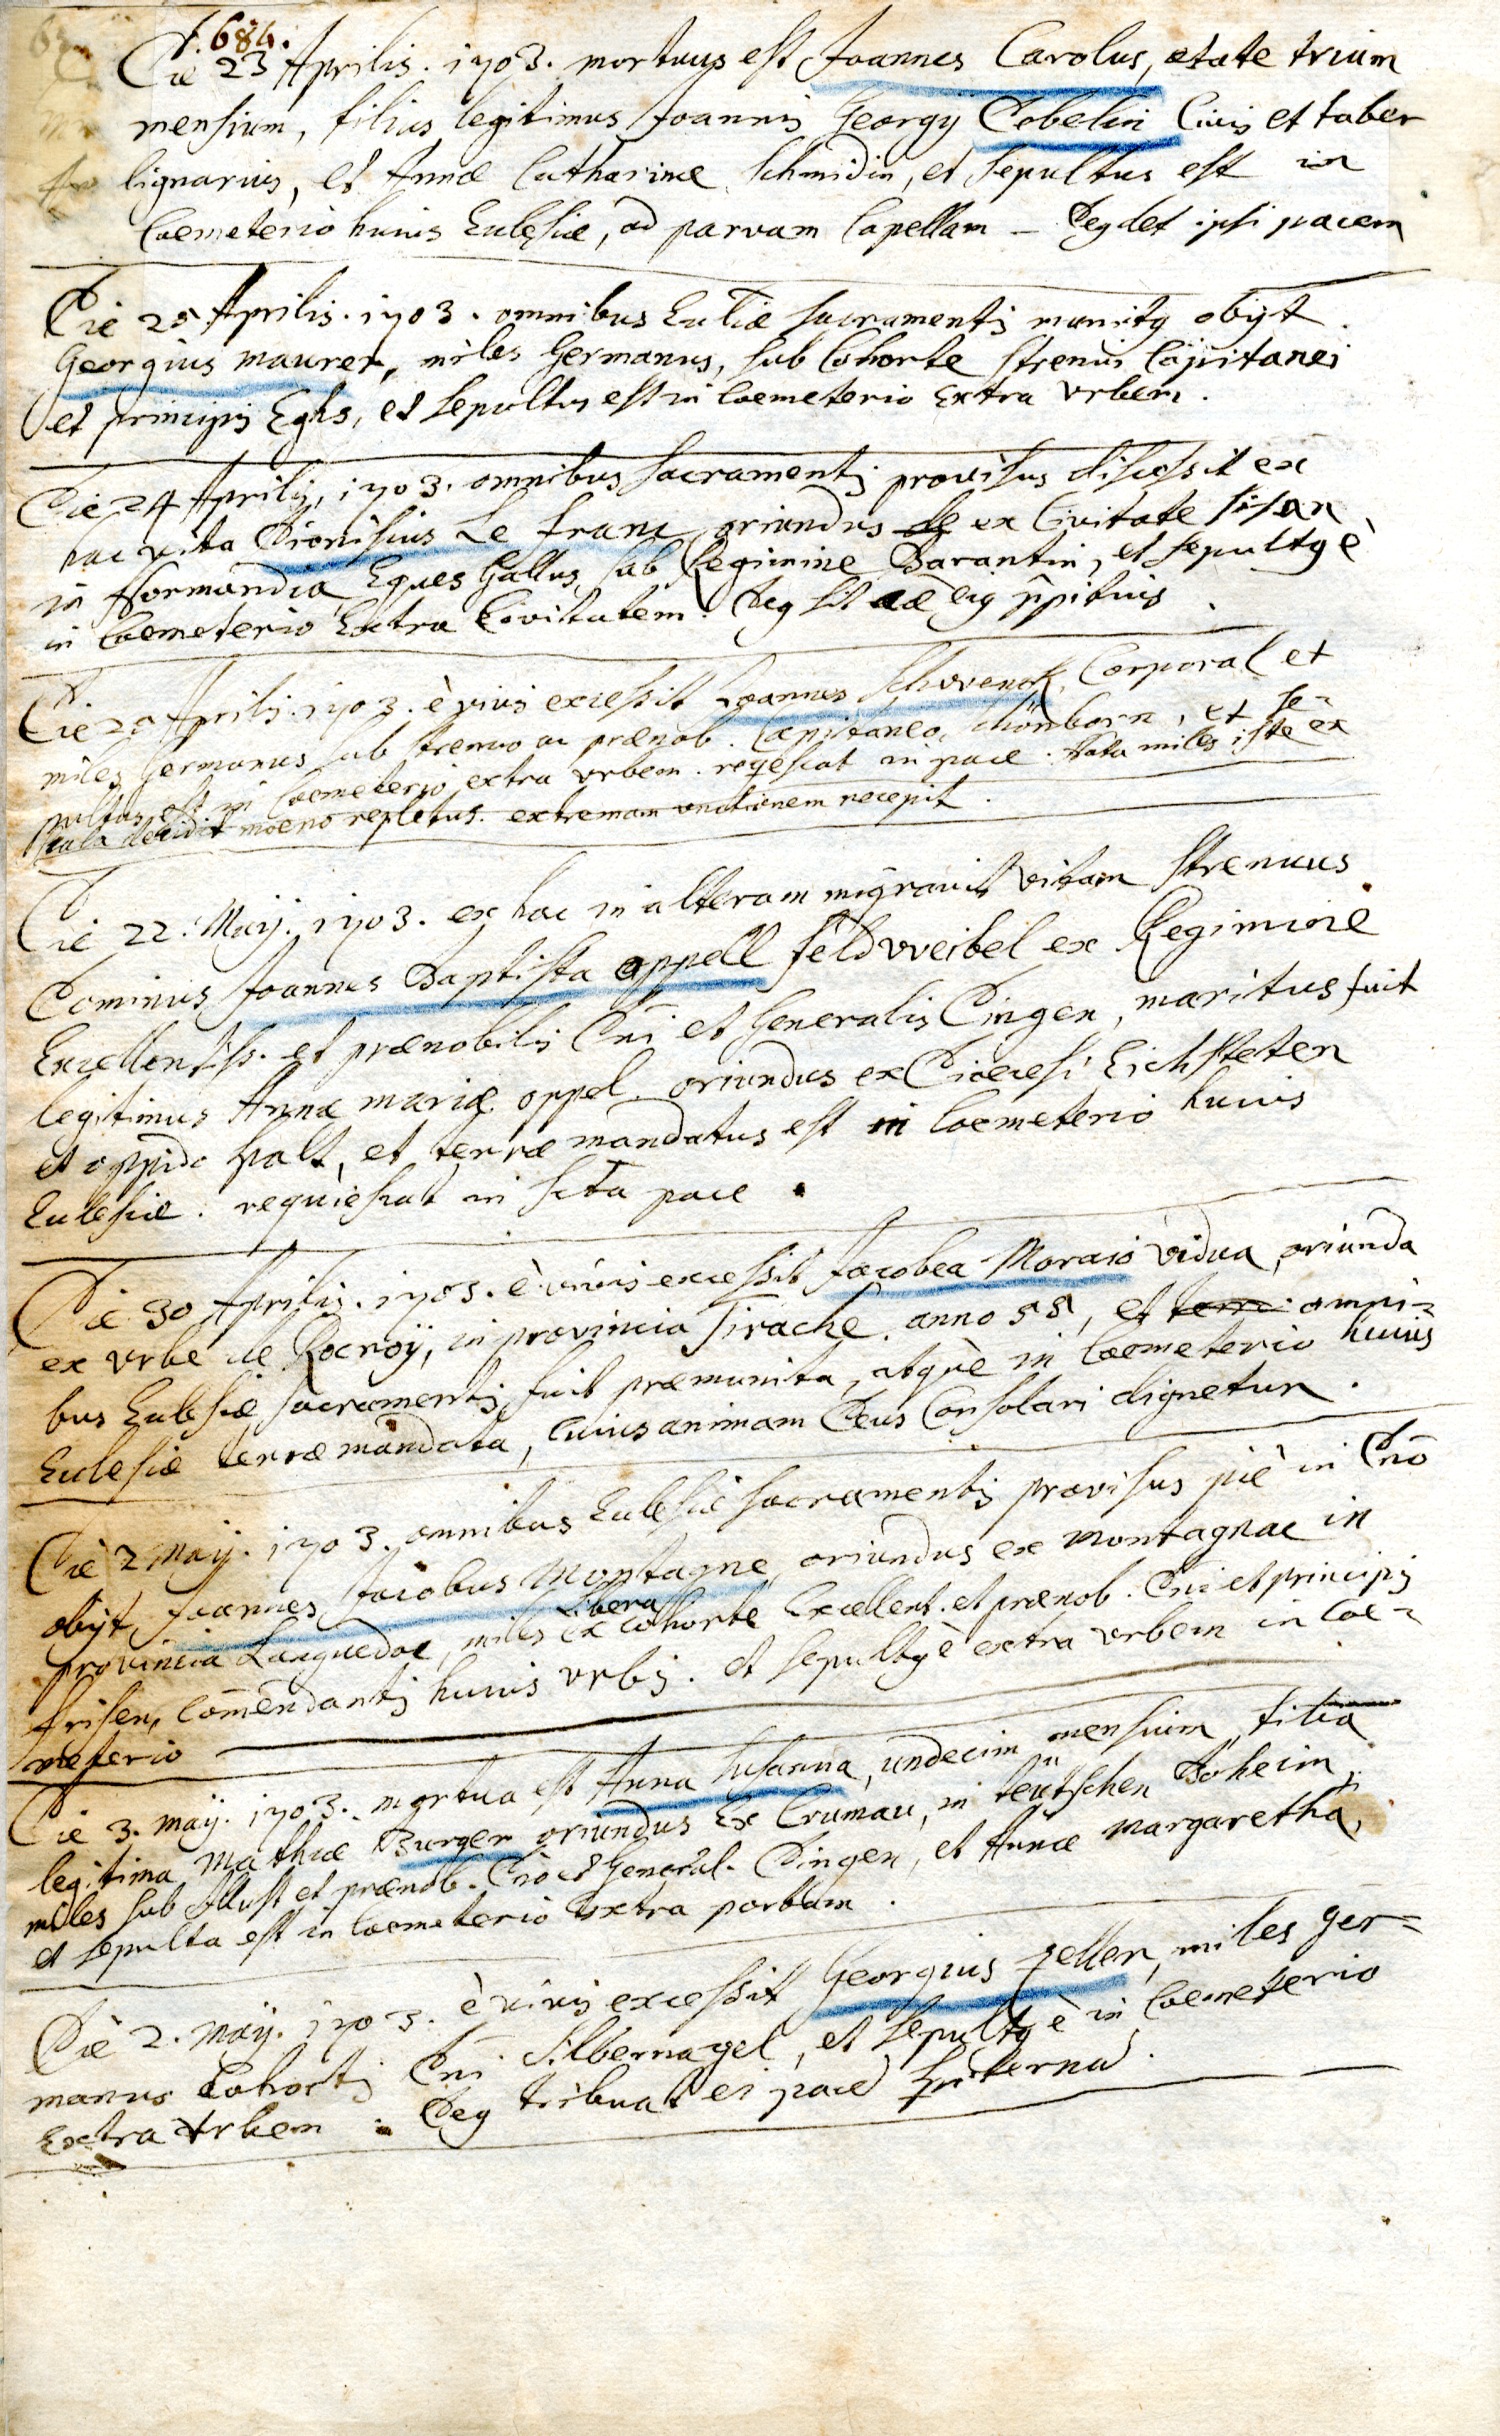 f. 684.
Die 23 Aprilis. 1703. mortuus est Joannes Carolus, etate trium
mensium, filius legitimus Joannis Georgij Debelin Civis et faber
lignarius, et Annæ Catharinæ Schmidin, et Sepultus est in
Coemeterio huius Eccl̄siæ, ad parvam Capellam – Deus det ipsi pacem
Die 25 Aprilis. 1703. omnibus Ecc̄liæ Sacramentis munitus obijt.
Georgius maurer, miles Germanus, sub Cohorte strenui Capitanei
et principis Eghs, et Sepultus est in Coemeterio Extra Urbem.
Die 24 Aprilis, 1703. omnibus sacramentis provisus discessit ex
hac vita Dionisius Le franc oriundus de ex Civitate
in Normandia Eques Gallus sub Regimine Barantin, et sepultus è
in Coemeterio Extra Civitatem. Deus sit
Die Aprilis. 1703. è vivis excessit Joannes Schwenck, Corporal et
miles Germanus sub strenuo ac prænob. Capitaneo, Schönborn, et se-
pultus est in Coemeterio extra urbem. reqescat in pace. Nota miles iste ex
scala decidit moeno repletus. extremam unctionem recepit.
Die 22. Maij. 1703. ex hac in alteram migravit vitam Strenuus
Dominus Joannes Baptista oppell feldweibel ex Regimine
Excellentiss. et prænobilis Dn̄i et Generalis Dingen, maritus fuit
legitimus Annæ mariæ oppel. oriundus ex Dioecesi Eichsteten
et oppido Spalt, et terræ mandatus est in Coemeterio huius
Ecclesiæ. requiescat in sc̄ta pace.
Die 30 Aprilis. 1703. è vivis excessit Jacobea Moraió vidua, oriunda
ex urbe de Rocroÿ, in provincia Tirache. anno 55, et terr omni-
bus Ecclesiæ sacramentis fuit præmunita, atque in Coemeterio huius
Ecclesiæ terræ mandata, cuius animam Deus Consolari dignetur.
Die 2 Maij. 1703. omnibus Ecclesiæ sacramentis provisus piè in Dn̄o
obijt Joannes Jacobus Montagne, oriundus ex Montagnac in
provincia Languedoc, miles ex libera cohorte Excellent. et prænob. Dn̄i et principis
frisen, Com̄endantis huius urbis. et sepultus è extra urbem in Coe-
meterio
Die 3. maij. 1703. mortua est Anna Susanna, undecim mensium, filia
legitima Mathiæ Burger oriundus Ex Crumau, in teutschen Boheim,
miles sub Illust et prænob. Dn̄o et General. Dingen, et Annæ Margaretha,
et sepulta est in Coemeterio Extra portam.
Die 2. Maij. 1703. è vivis excessit Georgius zeller, miles ger-
manus Cohortis Dn̄i Silbernagel, et sepultus è in Coemeterio
Extra Urbem. Deus tribuat ei pacē